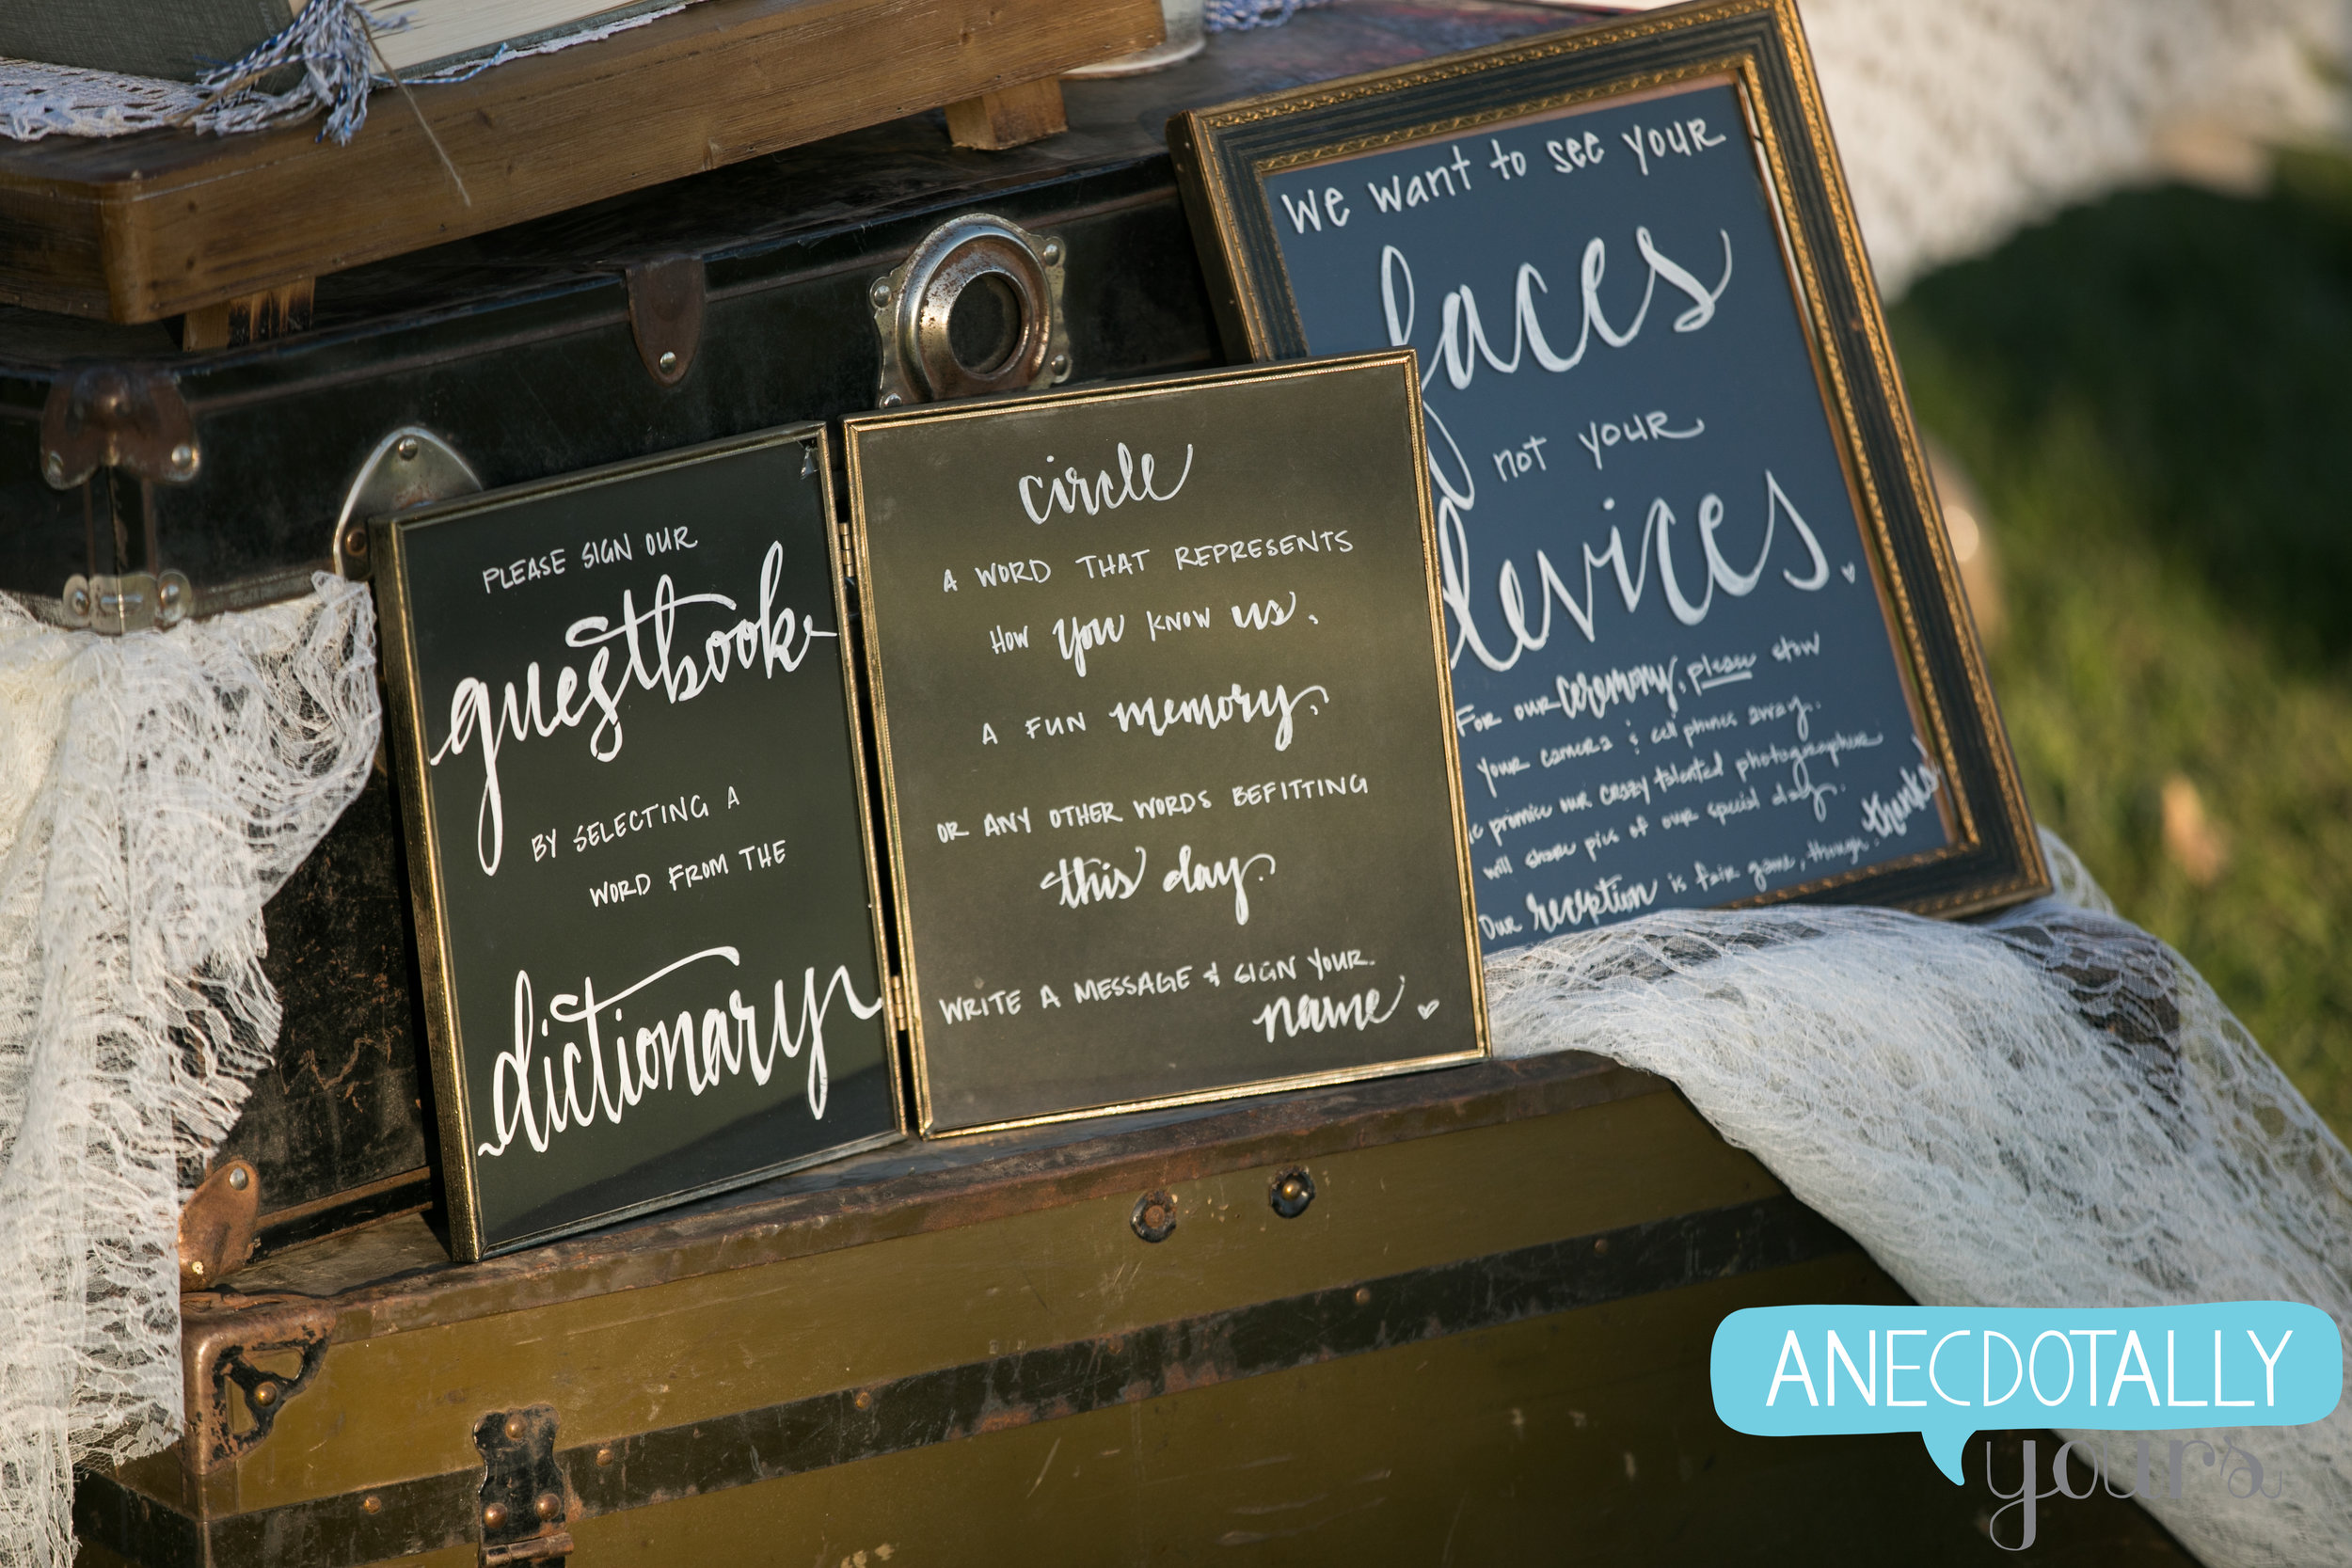 PLEASE SIGN OUR
guestbook
BY SELECTING A
WORD FROM THE
dictionary
circle
A WORD THAT REPRESENTS
HOW you KNOW us,
A FUN memory,
OR ANY OTHER WORDS BEFITTING
this day.
WRITE A MESSAGE & SIGN YOUR
name
We want to see your
faces
not your
devices.
For our ceremony, please stow
your camera & cell phones away.
promise our crazy talented photographer
will share pics of our special day.
Our reception is fair game, though. thanks
ANECDOTALLY
yours